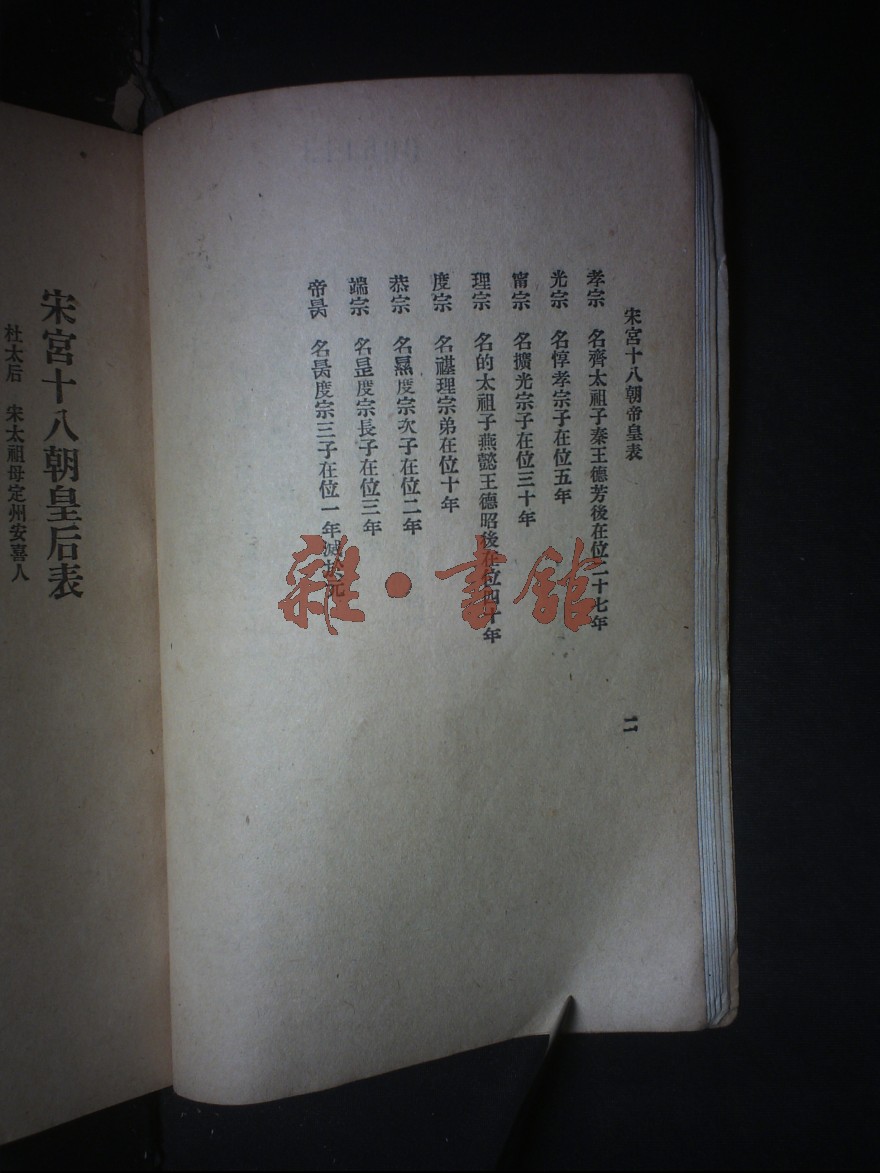 宋宮十八朝帝皇表
二
孝宗　名齊太祖子秦王德芳後在位二十七年
光宗　名惇孝宗子在位五年
甯宗　名擴光宗子在位三十年
理宗　名的太祖子燕懿王德昭後在位四十年
度宗　名禥理宗弟在位十年
恭宗　名㬎度宗次子在位二年
端宗　名昰度宗長子在位三年
帝昺　名昺度宗三子在位一年滅於元
宋宮十八朝皇后表
杜太后　宋太祖母定州安喜人
雜·書館